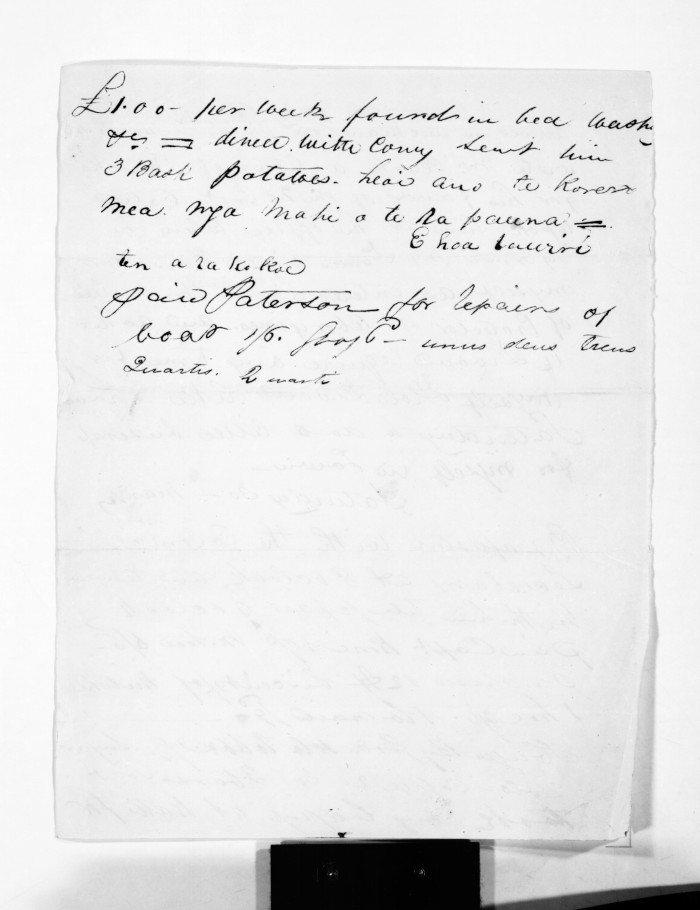 £1.00 - per week found in bed washg
&c = dined with Conny sent him
3 Bask potatoes. heoi ano te Korero
mea. nga mahi o te Ra pauna =
E hoa Lawiri
ten a ra ko koe
paid Paterson for repairs of
boat 1/6. - unus deus treus
Quartis. Quarti